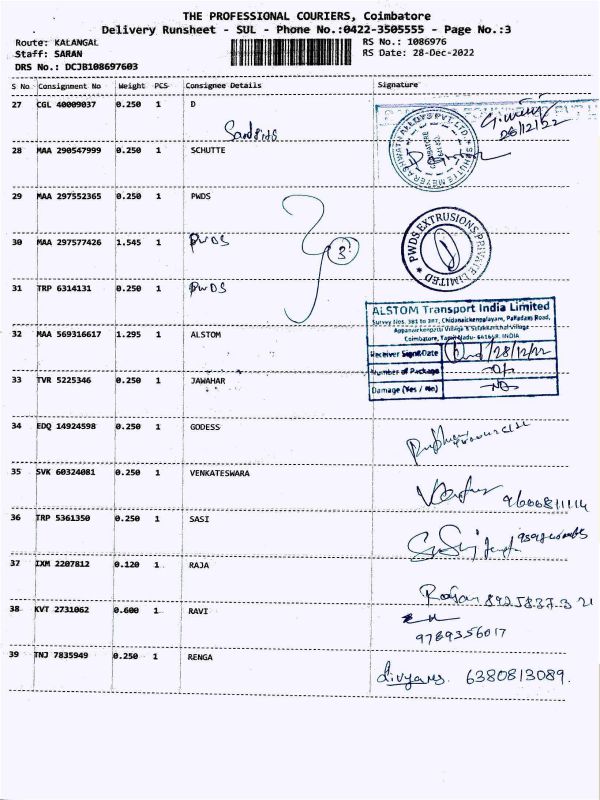 THE PROFESSIONAL COURIERS, Coimbatore
Delivery Runsheet - SUL - Phone No.:0422-3505555 - Page No.:3
Route: KALANGAL
RS No.: 1086976
Staff: SARAN
RS Date: 28-Dec-2022
DRS No.: DCJB108697603
S No Consignment No Weight PCS Consignee Details Signature
27 CGL 40009037 0.250 1 D
28/12/22
28 MAA 290547999 0.250 1 SCHUTTE
29 MAA 297552365 0.250 1 PWDS
PWDS EXTRUSIONS PRIVATE LIMITED
30 MAA 297577426 1.545 1 PWDS
3
31 TRP 6314131 0.250 1 PWDS
ALSTOM Transport India Limited
Coimbatore, Tamil Nadu- 641668. INDIA
32 MAA 569316617 1.295 1 ALSTOM
Receiver Sign&Date 28/12/22
Number of Package
Damage (Yes / No) No
33 TVR 5225346 0.250 1 JAWAHAR
34 EDQ 14924598 0.250 1 GODESS
35 SVK 60324081 0.250 1 VENKATESWARA
36 TRP 5361350 0.250 1 SASI
37 IXM 2207812 0.120 1 RAJA
38 KVT 2731062 0.600 1 RAVI
9789356017
39 TNJ 7835949 0.250 1 RENGA
6380813089.